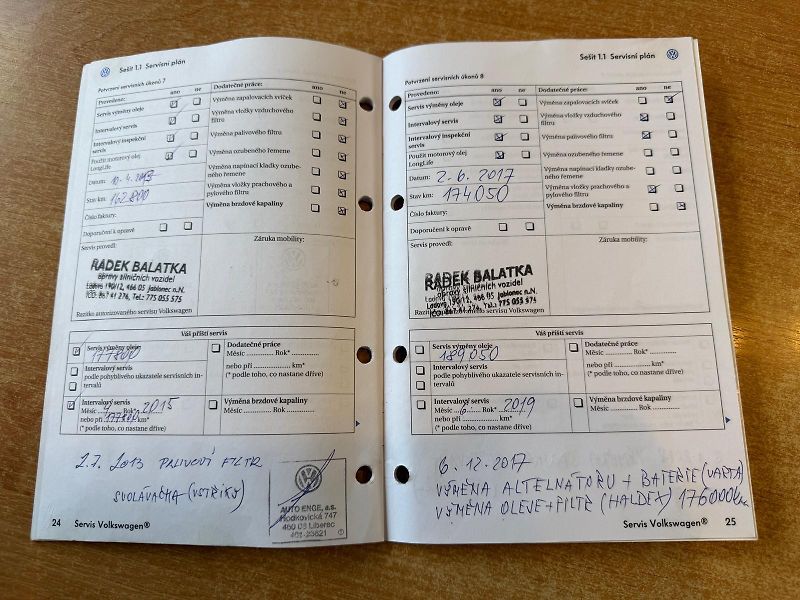 Sešit 1.1 Servisní plán
Potvrzení servisních úkonů 7
Provedeno: ano ne
Servis výměny oleje
Intervalový servis
Intervalový inspekční servis
Použit motorový olej LongLife
Datum: 10.4.2013
Stav km: 162800
Číslo faktury:
Doporučení k opravě
Dodatečné práce: ano ne
Výměna zapalovacích svíček
Výměna vložky vzduchového filtru
Výměna palivového filtru
Výměna ozubeného řemene
Výměna napínací kladky ozubeného řemene
Výměna vložky prachového a pylového filtru
Výměna brzdové kapaliny
Servis provedl:
Záruka mobility:
RADEK BALATKA
opravy silničních vozidel
Ladova 190/12, 466 05 Jablonec n.N.
Tel.: 775 055 575
Razítko autorizovaného servisu Volkswagen
Váš příští servis
Servis výměny oleje
177800
Intervalový servis
podle pohyblivého ukazatele servisních intervalů
Intervalový servis
Měsíc 4 Rok* 2015
nebo při 177800 km*
(* podle toho, co nastane dříve)
Dodatečná práce
Měsíc Rok*
nebo při km*
(* podle toho, co nastane dříve)
Výměna brzdové kapaliny
Měsíc Rok
2.7. 2013 PALIVOVÝ FILTR
SVOLÁVAČKA (VSTŘIKY)
AUTO ENGE, a.s.
Hodkovická 747
460 06 Liberec
24 Servis Volkswagen®
Sešit 1.1 Servisní plán
Potvrzení servisních úkonů 8
Provedeno: ano ne
Servis výměny oleje
Intervalový servis
Intervalový inspekční servis
Použit motorový olej LongLife
Datum: 2.6.2017
Stav km: 174050
Číslo faktury:
Doporučení k opravě
Dodatečné práce: ano ne
Výměna zapalovacích svíček
Výměna vložky vzduchového filtru
Výměna palivového filtru
Výměna ozubeného řemene
Výměna napínací kladky ozubeného řemene
Výměna vložky prachového a pylového filtru
Výměna brzdové kapaliny
Servis provedl:
Záruka mobility:
RADEK BALATKA
opravy silničních vozidel
Ladova 190/12, 466 05 Jablonec n.N.
Tel.: 775 055 575
Razítko autorizovaného servisu Volkswagen
Váš příští servis
Servis výměny oleje
189050
Intervalový servis
podle pohyblivého ukazatele servisních intervalů
Intervalový servis
Měsíc 6 Rok* 2019
nebo při km*
(* podle toho, co nastane dříve)
Dodatečná práce
Měsíc Rok*
nebo při km*
(* podle toho, co nastane dříve)
Výměna brzdové kapaliny
Měsíc Rok
6.12.2017
VÝMĚNA ALTELNÁTORU + BATERIE (VARTA)
VÝMĚNA OLEJE + FILTR (HALDEX) 176000km
Servis Volkswagen® 25